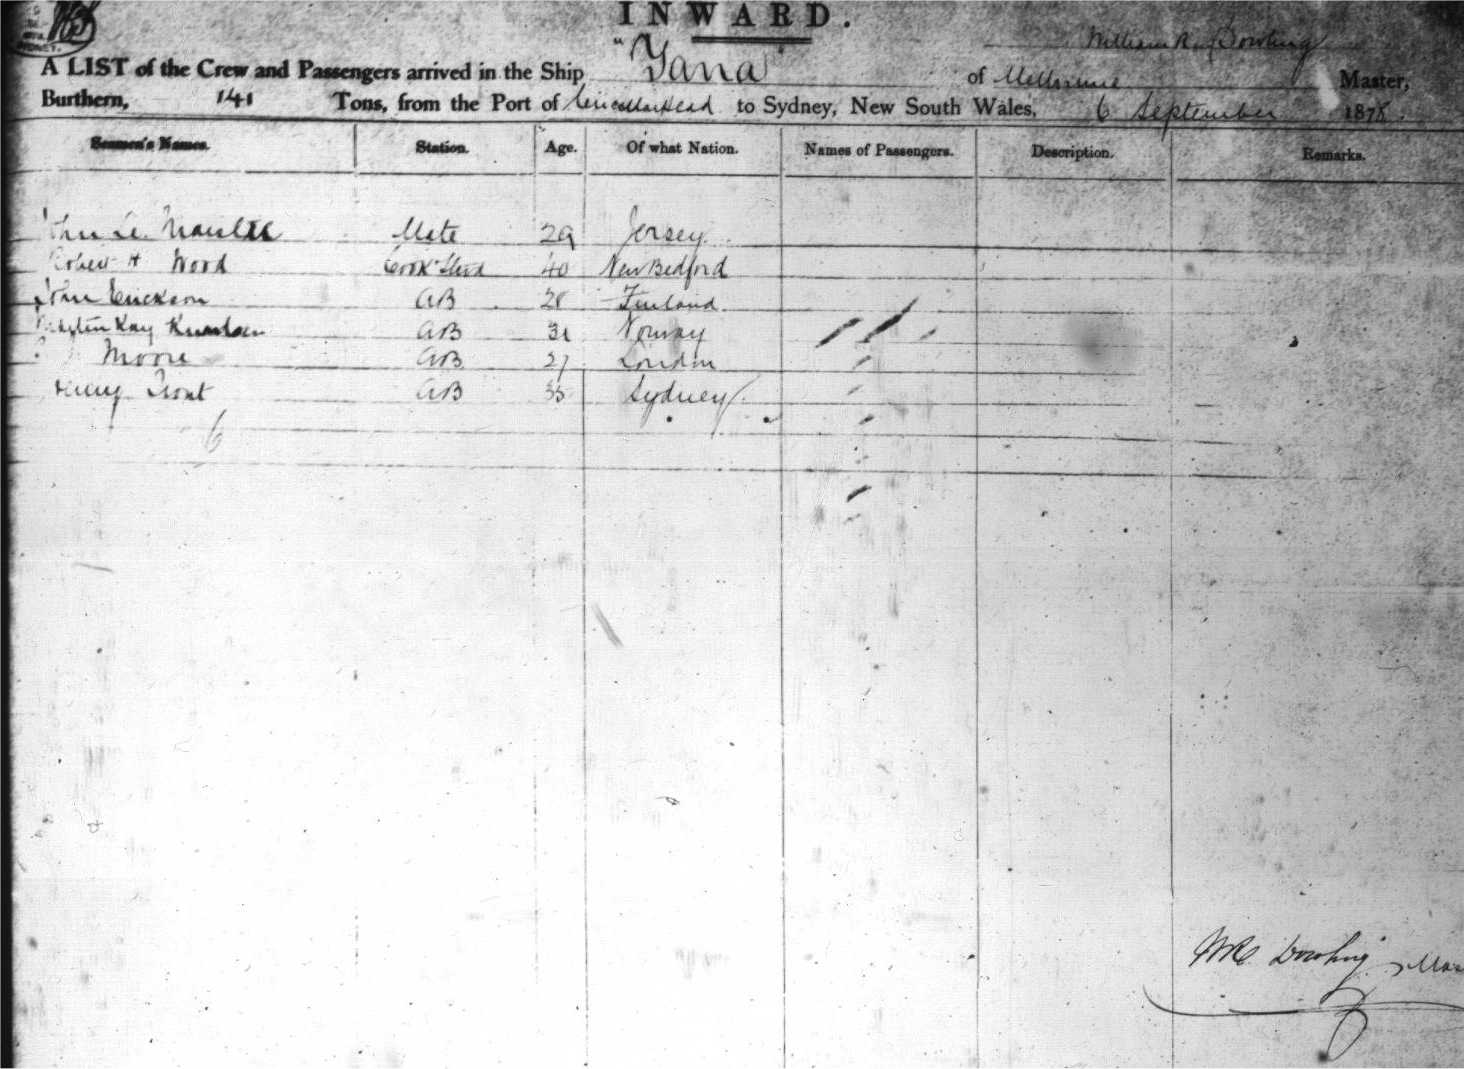 INWARD.
William R. Dowling
A LIST of the Crew and Passengers arrived in the Ship "Yarra" of Melbourne Master,
Burthern, 141 Tons, from the Port of to Sydney, New South Wales, 6 September 1878.
Seamen's Names. Station. Age. Of what Nation. Names of Passengers. Description. Remarks.
John Le Mate 29 Jersey.
Robert H Wood Cook & Stwd 40 New Bedford
John Erickson AB 28 Finland.
Kay Knudsen AB 31 Norway
Moore AB 27 London
Henry AB 35 Sydney
6
Dowling